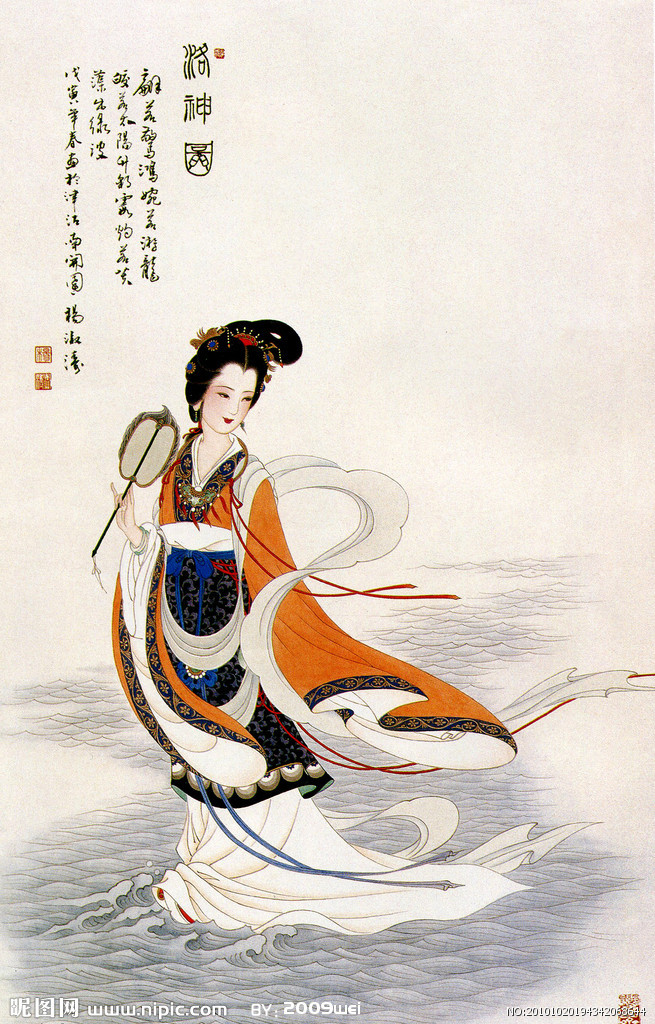 洛神圖
翩若驚鴻婉若游龍
皎若太陽升朝霞灼若芙
蕖出綠波
戊寅年春畫於津沽南開園楊淑濤
昵图网 www.nipic.com BY: 2009wei
NO:20101020194342063644